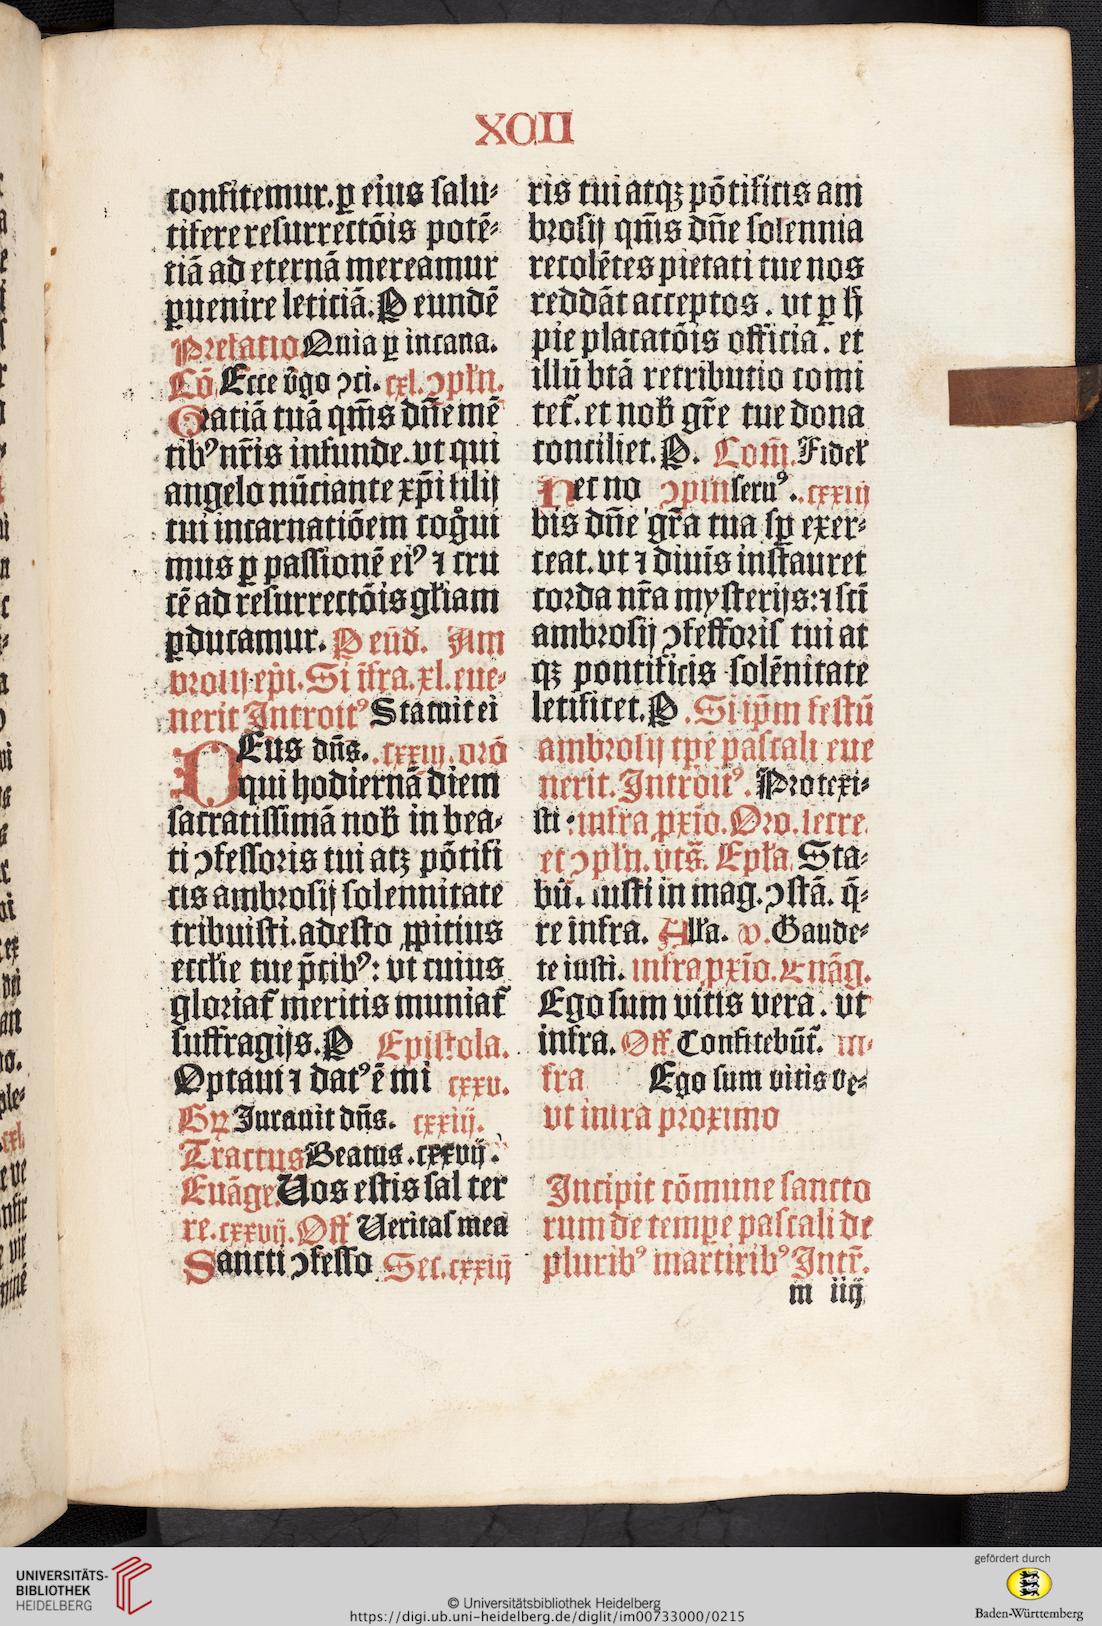 XCII
confitemur. ꝑ eius salu⸗
tifere resurrectõis potẽ⸗
tiã ad eternã mereamur
ꝑuenire leticiã. P eundẽ
Prefatio. Quia ꝑ incarna.
Cõ. Ecce v̄go ↄci. cxl. ↄpłn.
Gratiã tuã qm̄s dñe mẽ
tibꝰ nr̄is infunde. vt qui
angelo nũciante xp̄i filij
tui incarnatiõem cog̊ui
mus ꝑ passionẽ eiꝰ ⁊ cru
cẽ ad resurrectõis głiam
ꝑducamur. P eũd̄. Am
brosij ep̄i. Si ĩfra. xl. eue⸗
nerit Introitꝰ Statuit ei
DEus dñs. .cxxiij. orõ
qui hodiernã diem
sacratissimã nob̄ in bea⸗
ti ↄfessoris tui atꝫ põtifi
cis ambrosij solennitate
tribuisti. adesto ꝓpitius
eccłie tue p̄cibꝰ: vt cuius
gloriaꝷ meritis muniaꝷ
suffragijs. P Epistola.
Optaui ⁊ datꝰ ẽ mi cxxv.
Gꝝ Jurauit dñs. cxxiij.
Tractus Beatus .cxxvij.
Euãge. Uos estis sal ter
re. cxxvij. Off Ueritas mea
Sancti ↄfesso Sec. cxxiij
ris tui atqꝫ põtificis am
brosij qm̄s dñe solennia
recolẽtes pietati tue nos
reddãt acceptos. vt ꝑ h̄
pie placatõis officia. et
illũ btã retributio comi
teꝷ. et nob̄ gr̄e tue dona
conciliet. P. Com̄. Fideł
Nec no ↄpłn seruꝰ. .cxxiij
bis dñe gr̄a tua sꝑ exer⸗
ceat. vt ⁊ diuis̄ instauret
corda nr̄a mysterijs: ⁊ sc̄i
ambrosij ↄfessoris tui at
qꝫ pontificis solẽnitate
letificet. P. Si ip̄m festũ
ambrosij tꝑe pascali eue
nerit. Introitꝰ. Protexi⸗
sti. infra ꝓxĩo. Oro. secre.
et ↄpłn. vts̄. Epła. Sta⸗
bũ. iusti in mag. ↄstã. q̄⸗
re infra. Ałła. v. Gaude⸗
te iusti. infra ꝓxĩo. Euãg.
Ego sum vitis vera. vt
infra. Off. Confitebũt̄. in⸗
fra Ego sum vitis ve⸗
vt infra proximo
Incipit cõmune sancto
rum de tempe pascali de
pluribꝰ martiribꝰ Intr̄.
m iiij
UNIVERSITÄTS-
BIBLIOTHEK
HEIDELBERG
© Universitätsbibliothek Heidelberg
https://digi.ub.uni-heidelberg.de/diglit/im00733000/0215
gefördert durch
Baden-Württemberg